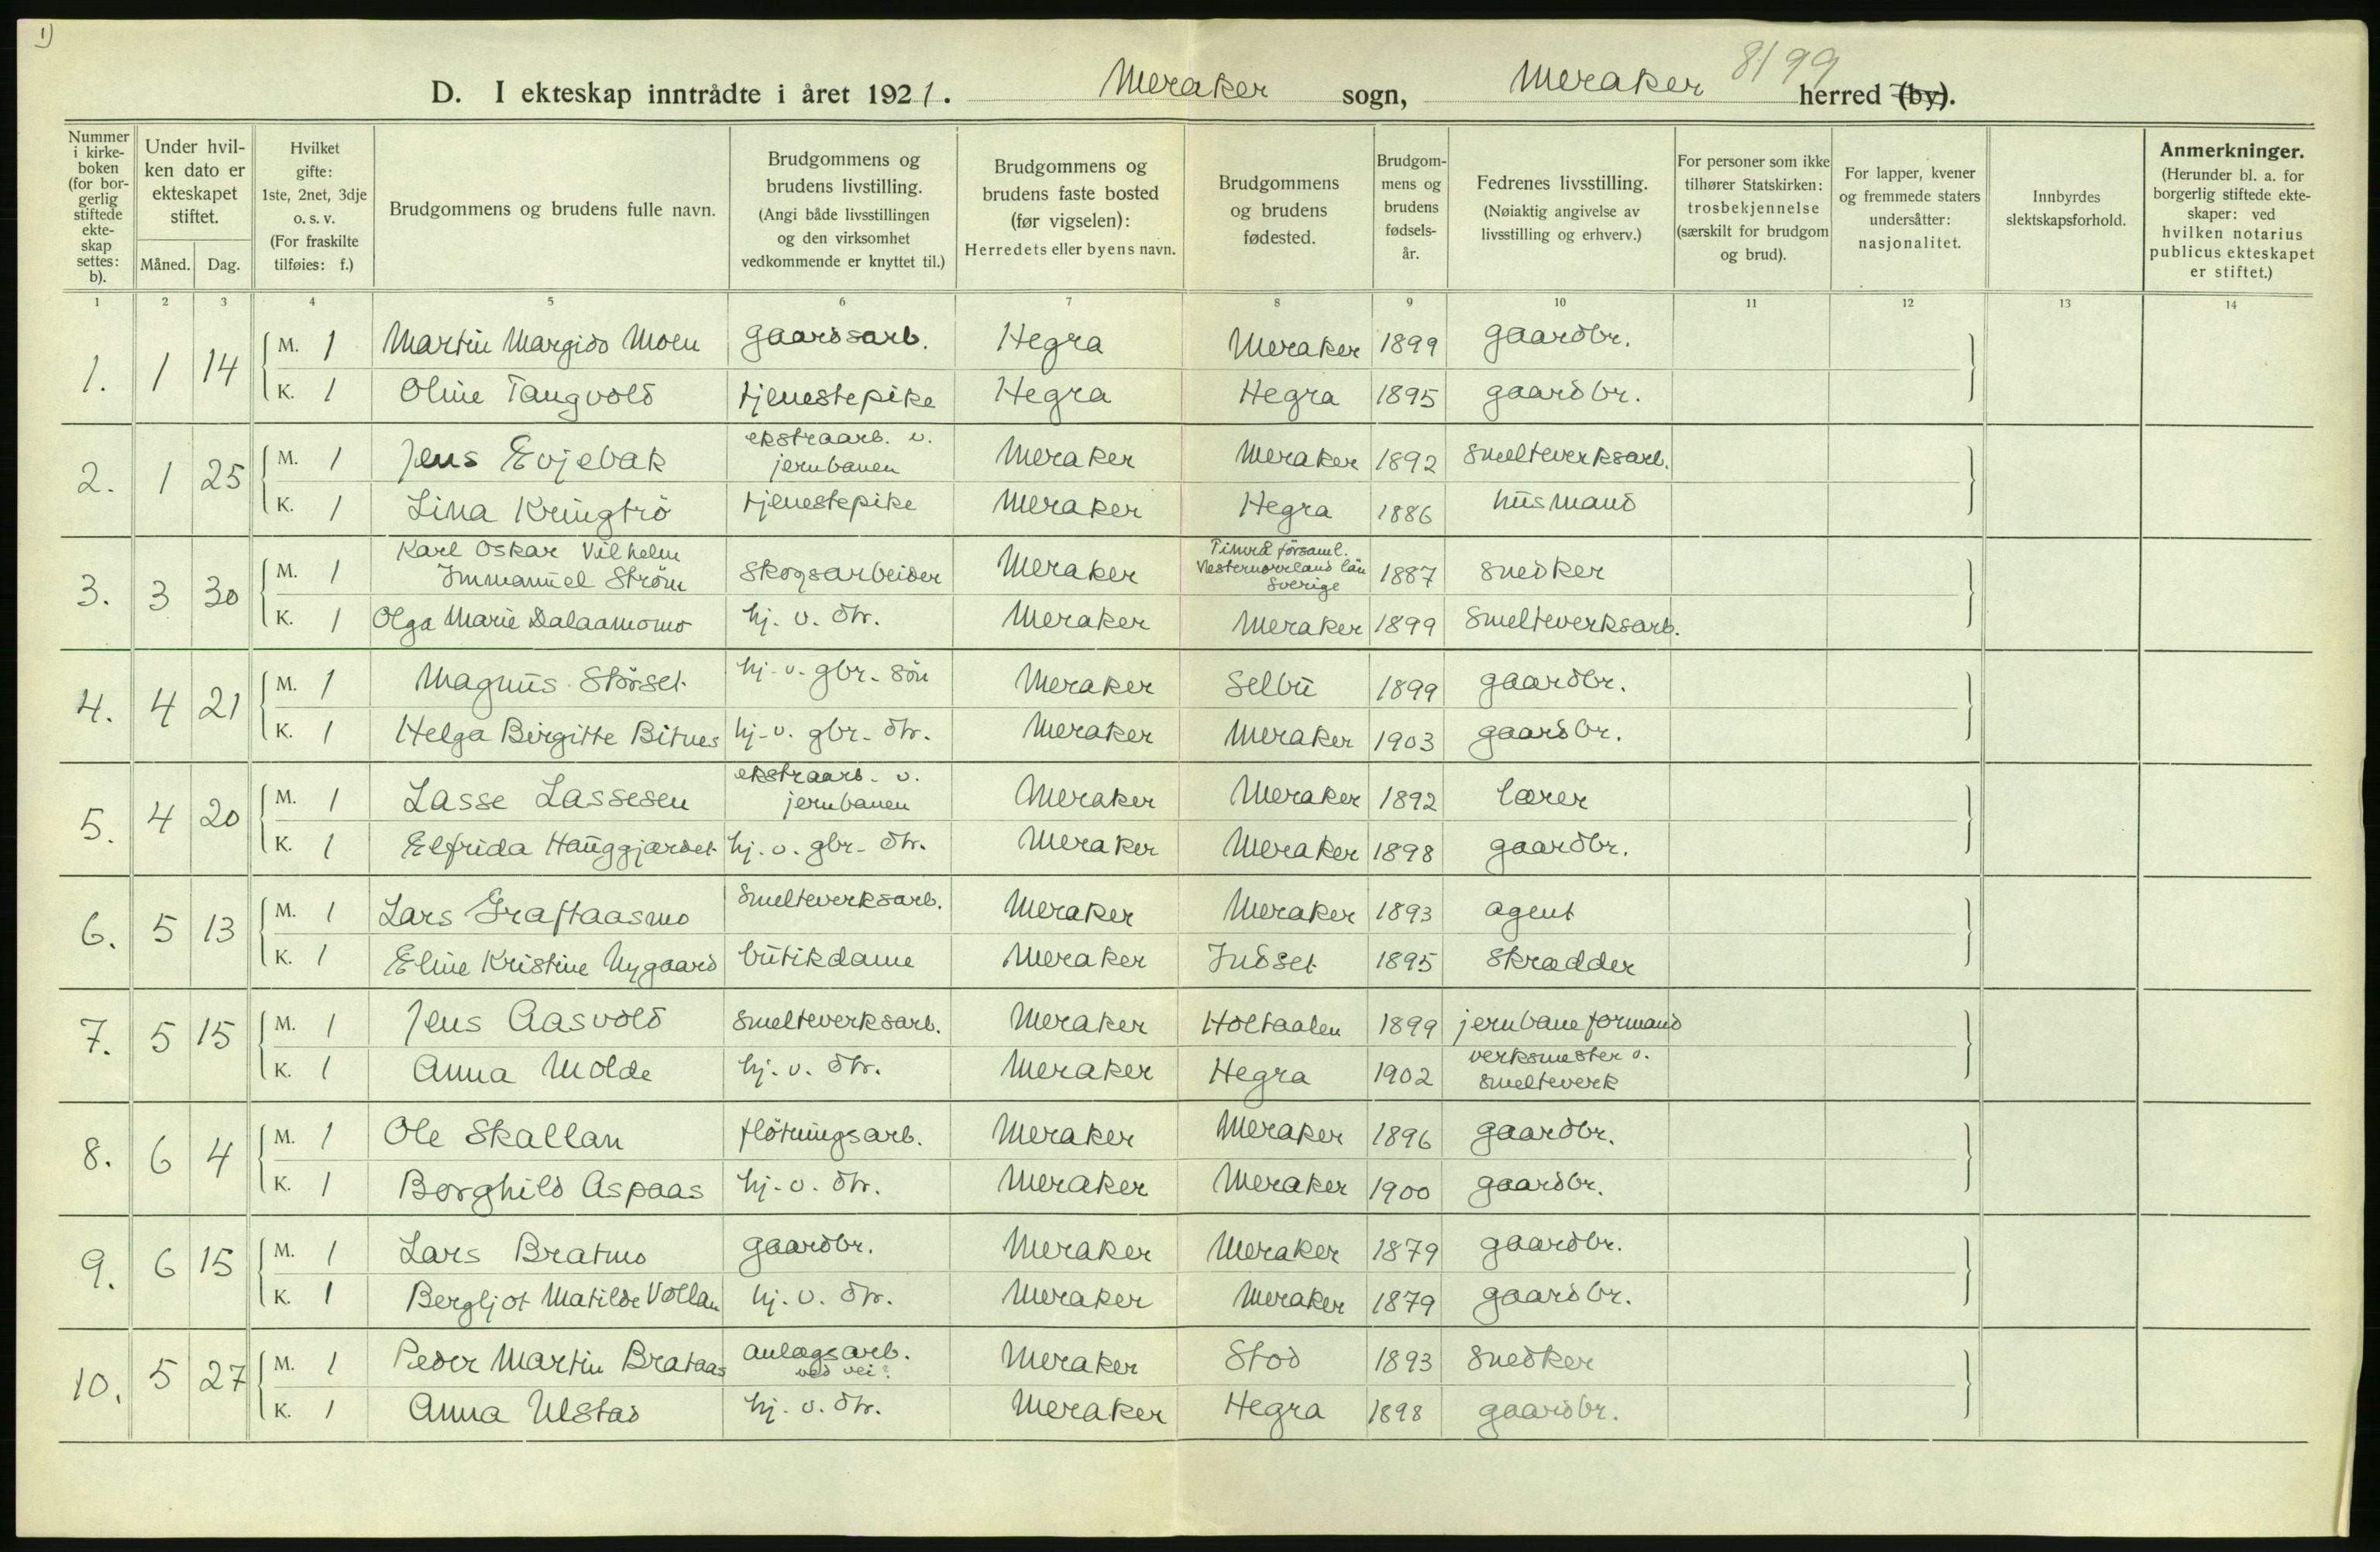 1)
8199
D. I ekteskap inntrådte i året 1921. Meraker sogn, Meraker herred (by).
Nummer i kirke-boken (for bor-gerlig stiftede ekte-skap settes: b).
Under hvil-ken dato er ekteskapet stiftet.
Måned. Dag.
Hvilket gifte: 1ste, 2net, 3dje o. s. v. (For fraskilte tilføies: f.)
Brudgommens og brudens fulle navn.
Brudgommens og brudens livstilling. (Angi både livsstillingen og den virksomhet vedkommende er knyttet til.)
Brudgommens og brudens faste bosted (før vigselen): Herredets eller byens navn.
Brudgommens og brudens fødested.
Brudgom-mens og brudens fødsels-år.
Fedrenes livsstilling. (Nøiaktig angivelse av livsstilling og erhverv.)
For personer som ikke tilhører Statskirken: trosbekjennelse (særskilt for brudgom og brud).
For lapper, kvener og fremmede staters undersåtter: nasjonalitet.
Innbyrdes slektskapsforhold.
Anmerkninger. (Herunder bl. a. for borgerlig stiftede ekte-skaper: ved hvilken notarius publicus ekteskapet er stiftet.)
1 2 3 4 5 6 7 8 9 10 11 12 13 14
1. 1 14 M. 1 Martin Margido Moen gaardsarb. Hegra Meraker 1899 gaardbr.
K. 1 Oline Tangvold tjenestepike Hegra Hegra 1895 gaardbr.
2. 1 25 M. 1 Jens Evjebak ekstraarb. v. jernbanen Meraker Meraker 1892 Smelteverksarb.
K. 1 Lina Kringtrö tjenestepike Meraker Hegra 1886 husmand
3. 3 30 M. 1 Karl Oskar Vilhelm Immanuel Ström Skogsarbeider Meraker Timrå församl. Vesternorrland län Sverige 1887 Snedker
K. 1 Olga Marie Dalaamomo hj. v. dtr. Meraker Meraker 1899 Smelteverksarb.
4. 4 21 M. 1 Magnus Störset hj. v. gbr. sön Meraker Selbu 1899 gaardbr.
K. 1 Helga Birgitte Bitnes hj. v. gbr. dtr. Meraker Meraker 1903 gaardbr.
5. 4 20 M. 1 Lasse Lassesen ekstraarb. v. jernbanen Meraker Meraker 1892 lærer
K. 1 Elfrida Hauggjærdet hj. v. gbr. dtr. Meraker Meraker 1898 gaardbr.
6. 5 13 M. 1 Lars Graftaasmo Smelteverksarb. Meraker Meraker 1893 agent
K. 1 Eline Kristine Nygaard butikdame Meraker Indset 1895 Skrædder
7. 5 15 M. 1 Jens Aasvold Smelteverksarb. Meraker Holtaalen 1899 jernbaneformand
K. 1 Anna Molde hj. v. dtr. Meraker Hegra 1902 verksmester v. smelteverk
8. 6 4 M. 1 Ole Skallan flötningsarb. Meraker Meraker 1896 gaardbr.
K. 1 Borghild Aspaas hj. v. dtr. Meraker Meraker 1900 gaardbr.
9. 6 15 M. 1 Lars Bratmo gaardbr. Meraker Meraker 1879 gaardbr.
K. 1 Bergljot Matilde Vollan hj. v. dtr. Meraker Meraker 1879 gaardbr.
10. 5 27 M. 1 Peder Martin Brataas anlægsarb. ved vei? Meraker Stod 1893 Snedker
K. 1 Anna Ulstad hj. v. dtr. Meraker Hegra 1898 gaardbr.